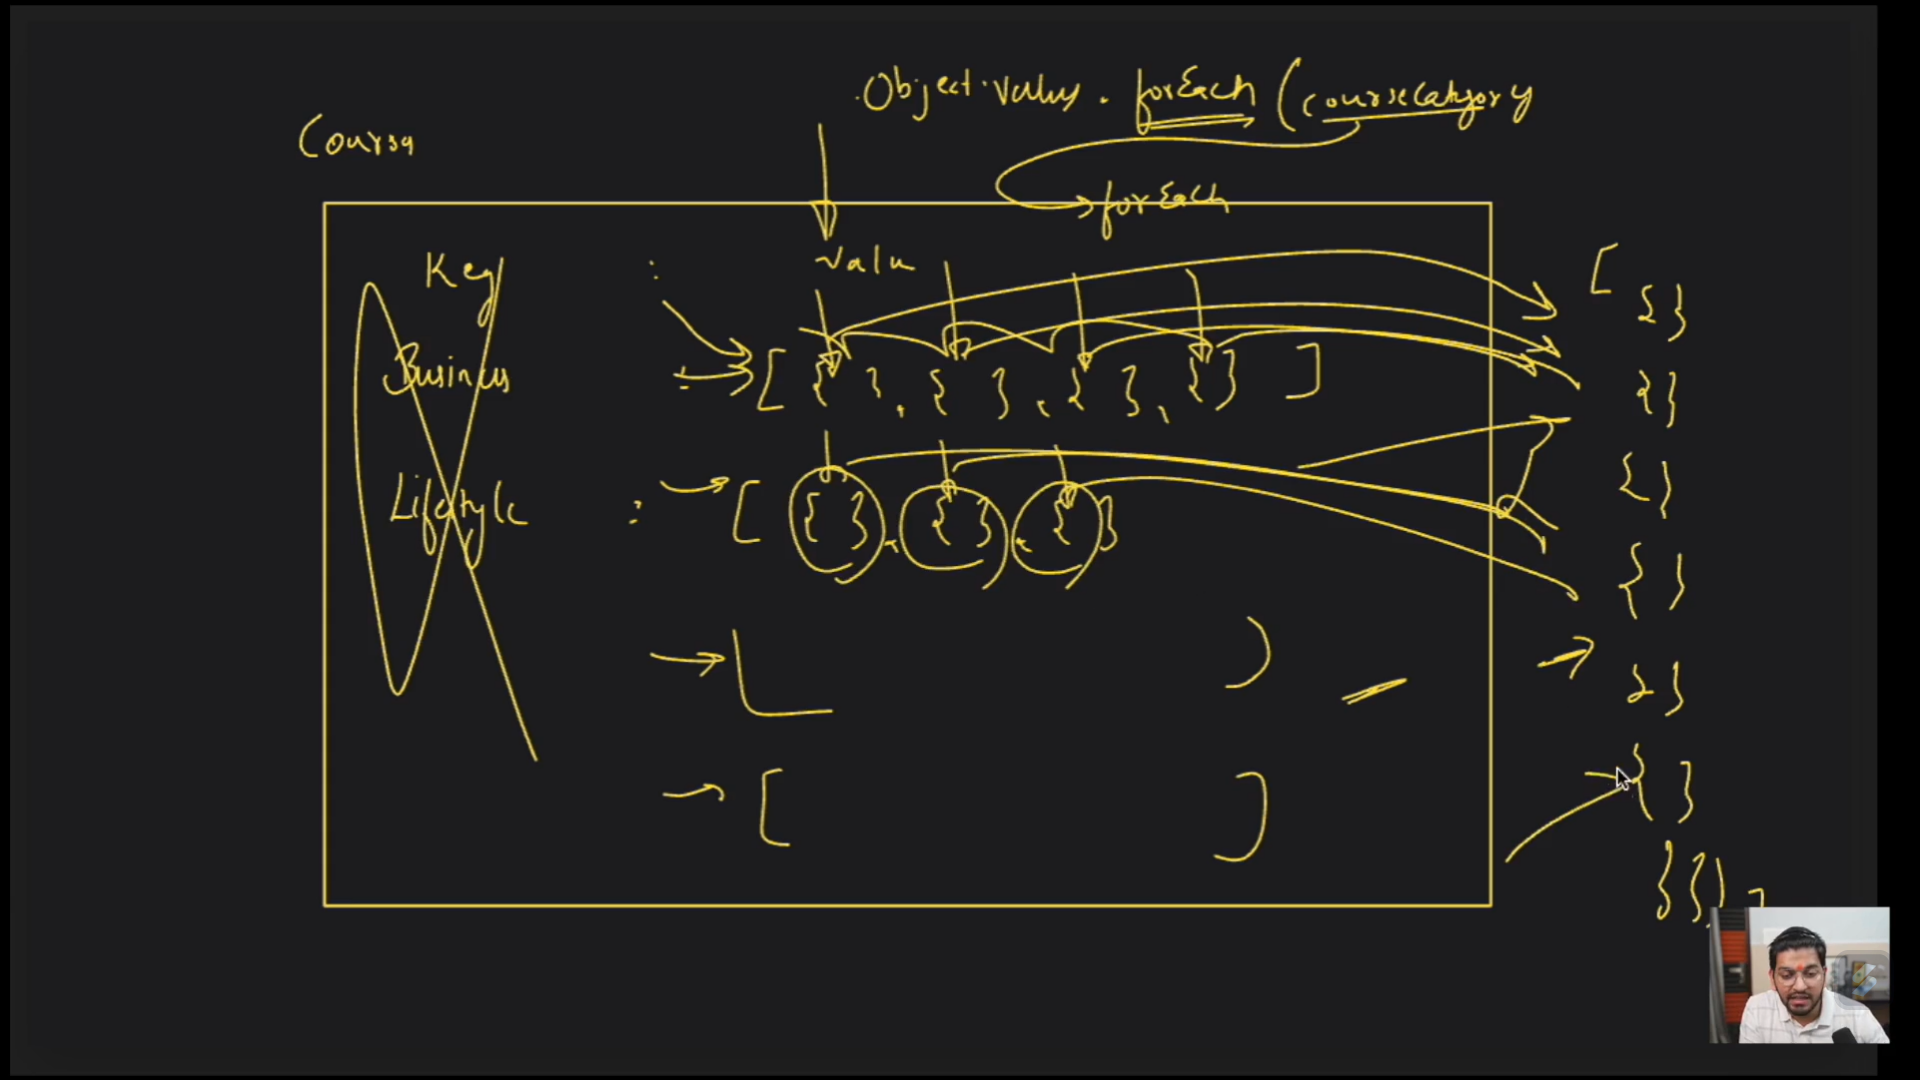 .Object.values.forEach (courseCategory
Courses
forEach
Key : Value
Business : [ { }, { }, { }, { } ]
Lifestyle : [ { }, { }, { }
[ )
[ ]
[ { }
{ }
{ }
{ }
{ }
{ }
{ { } ]